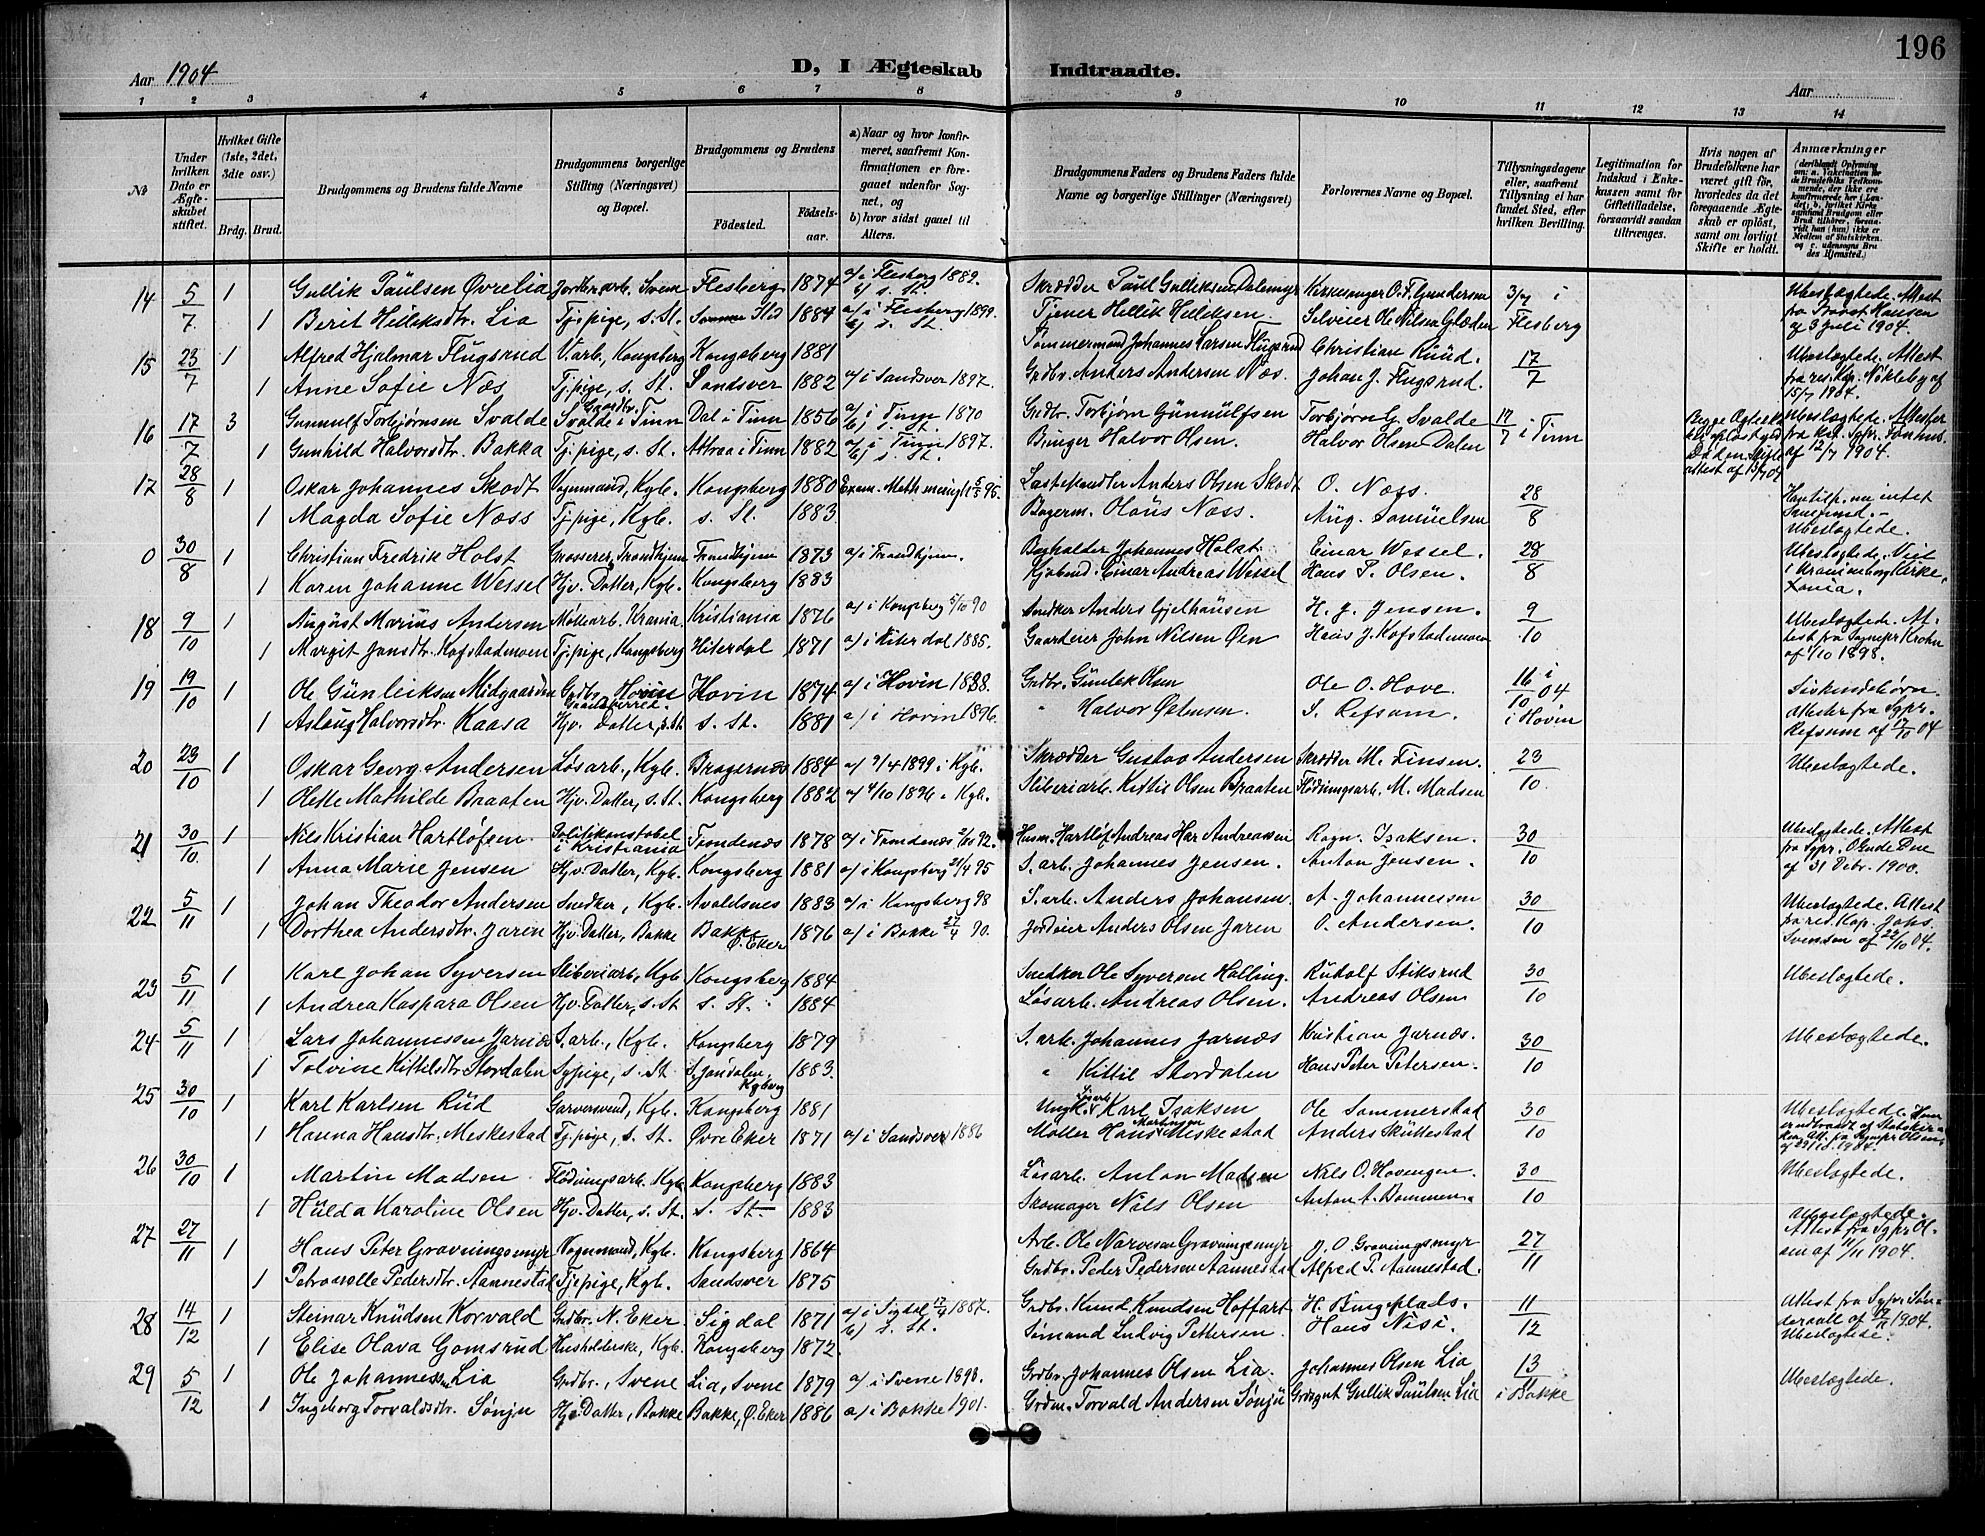 196
Aar 1904
D, I Ægteskab Indtraadte.
Aar
1 2 3 4 5 6 7 8 9 10 11 12 13 14
No
Under hvilken Dato er Ægteskabet stiftet.
Hvilket Gifte (1ste, 2det, 3die osv.)
Brdg. Brud.
Brudgommens og Brudens fulde Navne
Brudgommens borgerlige Stilling (Næringsvei) og Bopæl.
Brudgommens og Brudens
Fødested.
Fødselsaar.
a) Naar og hvor konfirmeret, saafremt Konfirmationen er foregaaet udenfor Sognet, og
b) hvor sidst gaaet til Alters.
Brudgommens Faders og Brudens Faders fulde Navne og borgerlige Stillinger (Næringsvei)
Forlovernes Navne og Bopæl.
Tillysningsdagene eller, saafremt Tillysning ei har fundet Sted, efter hvilken Bevilling.
Legitimation for Indskud i Enkekassen samt for Giftetilladelse, forsaavidt saadan tiltrænges.
Hvis nogen af Brudefolkene har været gift før, hvorledes da det foregaaende Ægteskab er opløst, samt om lovligt Skifte er holdt.
Anmærkninger
14 5/7 1 Gullik Paulsen Øvrelia Svene Flesberg 1874 a/ i Flesberg 1889. b/ s. St. Skrædder Paul Gulliksen Kirkesanger O. T. Gundersen 3/7 i Flesberg Ubeslægtede. Attest fra Provst Hansen af 3 Juli 1904.
1 Berit Helliksdtr. Lia Tj.pige, s. St. 1884 a/ i Flesberg 1899. b/ s. St. Tjener Hellik Helliksen. Selveier Ole Nilsen
15 23/7 1 Alfred Hjalmar Flugsrud V.arb, Kongsberg Kongsberg 1881 Tømmermand Johannes Larsen Flugsrud Christian Ruud. 17/7 Ubeslægtede. Attest fra res. Kap. Nökleby af 15/7 1904.
1 Anne Sofie Næs Tj.pige, s. St. Sandsver 1882 a/ i Sandsver 1897. Grdbr. Anders Andersen Næs. Johan J. Flugsrud.
16 17/7 3 Gunnulf Torbjørnsen Svalde Gaardbr. Svalde i Tinn Dal i Tinn 1856 a/ i Tinn 1870 b/ s. St. Grdbr. Torbjørn Gunnulfsen Torbjørn G Svalde 17/7 i Tinn Ubeslægtede. Attester af 12/7 1904.
1 Gunhild Halvorsdtr. Bakka Tj.pige, s. St. Attraa i Tinn 1882 a/ i Tinn 1897. b/ s. St. Halvor Olsen. Halvor Olsen Dalen
17 28/8 1 Oskar Johannes Skodt Vognmand, Kgb. Kongsberg 1880 Anders Olsen Skodt O. Næss. 28/8
1 Magda Sofie Næss Tj.pige, Kgb. s. St. 1883 Bagerm. Olaus Næss. Aug. Samuelsen Ubeslægtede.
0 30/8 1 Christian Fredrik Holst Grosserer, Trondhjem Trondhjem 1873 a/ i Trondhjem. Bogholder Johannes Holst. Einar Wessel. 28/8 Ubeslægtede. Viet i Kirke,
1 Karen Johanne Wessel Hjv. Datter, Kgb. Kongsberg 1883 Kjøbmd. Einar Andreas Wessel Hans P. Olsen.
18 9/10 1 August Marius Andersen Møllearb. Krania. Kristiania 1876 a/ i Kongsberg 5/10 90 Snedker Anders Gjelhausen H. J. Jensen. 9/10 Ubeslægtede. Attest fra Sognepr. Krohn af 1/10 1898.
1 Margit Jonsdtr. Kofstadmoen Tj.pige, Kongsberg Hiterdal 1871 a/ i Hiterdal 1885. Gaardeier John Nilsen Øen Hans J. Kofstadmoen
19 19/10 1 Ole Gunleiksen Midgaarden Grdbr. Hovin Hovin 1874 a/ i Hovin 1888. Grdbr. Gunleik Olsen Ole O. Hove. 16/10 04 i Hovin Søskendebørn. Attester fra Sgpr. Refsum af 17/10 04
1 Aslaug Halvorsdtr. Kaasa Hjv. Datter, s. St s. St. 1881 a/ i Hovin 1896. " Halvor Østensen. S. Refsum.
20 23/10 1 Oskar Georg Andersen Løsarb., Kgb. Bragernæs 1884 a/ 9/4 1899 i Kgb. Skrædder Gustav Andersen Skrædder M. Finsen. 23/10. Ubeslægtede.
1 Olette Mathilde Braaten Hjv. Datter, s. St. Kongsberg 1882 a/ 4/10 1896 i Kgb. Sliberiarb. Kittil Olsen Braaten Flødningsarb. M. Madsen
21 30/10 1 Nils Kristian Hartløfsen Politikonstabel i Kristiania Trondenæs 1878 a/ i Trondenæs 2/10 92. Husm. Hartløf Andreas Andreassen Ragn. Isaksen. 30/10 Ubeslægtede. Attest fra Sgpr. af 31 Debr. 1900.
1 Anna Marie Jensen Hjv. Datter, Kgb. Kongsberg 1881 a/ i Kongsberg 21/4 95 S. arb. Johannes Jensen. Anton Jensen.
22 5/11 1 Johan Theodor Andersen Snedker, Kgb. Avaldsnes 1883 a/ i Kongsberg 98 S. arb. Anders Johansen. A. Johannessen 30/10 Ubeslægtede. Attest fra res. Kap. Johs. Svensen af 22/10 04.
1 Dorthea Andersdtr. Jaren Hjv. Datter, Bakke Bakke Ø. Eker 1876 a/ i Bakke 27/4 90. Jordeier Anders Olsen Jaren O. Andersen.
23 5/11 1 Karl Johan Syversen Sliberiarb., Kgb. Kongsberg 1884 Snedker Ole Syversen Halling. Rudolf Stiksrud 30/10 Ubeslægtede.
1 Andrea Kaspara Olsen Hjv. Datter, s. St s. St. 1884 Løsarb. Andreas Olsen. Andreas Olsen
24 5/11 1 Lars Johannessen Jarnæs S. arb., Kgb. Kongsberg 1879 S. arb. Johannes Jarnæs Kristian Jarnæs. 30/10 Ubeslægtede.
1 Tolvine Kittelsdtr. Stordalen Sypige, s. St. Jondalen, Kgberg 1883. " Kittil Stordalen Hans Peter Petersen.
25 30/10 1 Karl Karlsen Rud Garversvend, Kgb. Kongsberg 1881 Ungk. Karl Isaksen Ole Sommerstad 30/10 Ubeslægtede.
1 Hanna Hansdtr. Meskestad Tj.pige, s. St. Øvre Eker 1871 a/ i Sandsver 1886 Møller Hans Martinsen Meskestad Anders Skullestad
26 30/10 1 Martin Madsen Flødningsarb. Kgb. Kongsberg 1883 Løsarb. Anton Madsen Nils O. Hovengen. 30/10 Ubeslægtede.
1 Hulda Karoline Olsen Hjv. Datter, s. St. s. St. 1883 Skomager Nils Olsen Anton A. Bommen.
27 27/11 1 Hans Peter Gravningsmyr Vognmand, Kgb. Kongsberg 1864 Arb. Ole Narvesen Gravningsmyr J. O Gravningsmyr 27/11 Ubeslægtede. Attest fra Sgpr. Olsen af 11/11 1904.
1 Petronelle Pedersdtr. Aannestad Tjepige, Kgb. Sandsver 1875 Grdbr. Peder Pedersen Aannestad Alfred P. Aannestad.
28 14/12 1 Steinar Knudsen Korvald Grdbr. N. Eker. Sigdal 1871 a/ i Sigdal 17/4 1887. b/ s. St. Grdbr. Knud Knudsen Hoffart H. Bingplads. 11/12 Attest fra Sgpr. af 17/11 1904. Ubeslægtede.
1 Elise Olava Gomsrud Husholderske, Kgb. Kongsberg 1872 Sømand Ludvig Pettersen. Hans Nisi.
29 5/12 1 Ole Johannessen Lia Grdbr., Svene Lia, Svene 1879 a/ i Svene 1893. Grdbr. Johannes Olsen Lia. Johannes Olsen Lia 13 i Bakke Ubeslægtede.
1 Ingeborg Torvaldsdtr. Sønju Hj. Datter, Bakke Bakke, Ø. Eker 1886 a/ i Bakke 1901. Grdm. Torvald Andersen Sønju Grdsgut Gullik Paulsen Lia